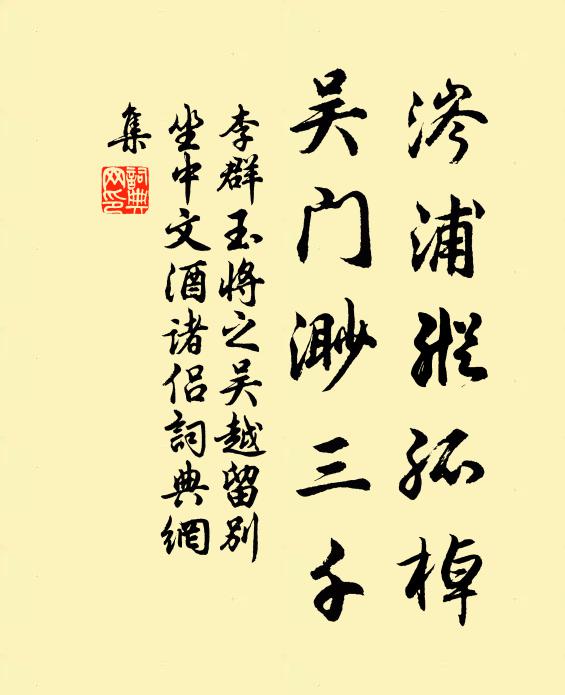 涔浦縱孤棹
吴门渺三千
李群玉将之吴越留别
坐中文酒诸侣詞典網
集
詞典
网印